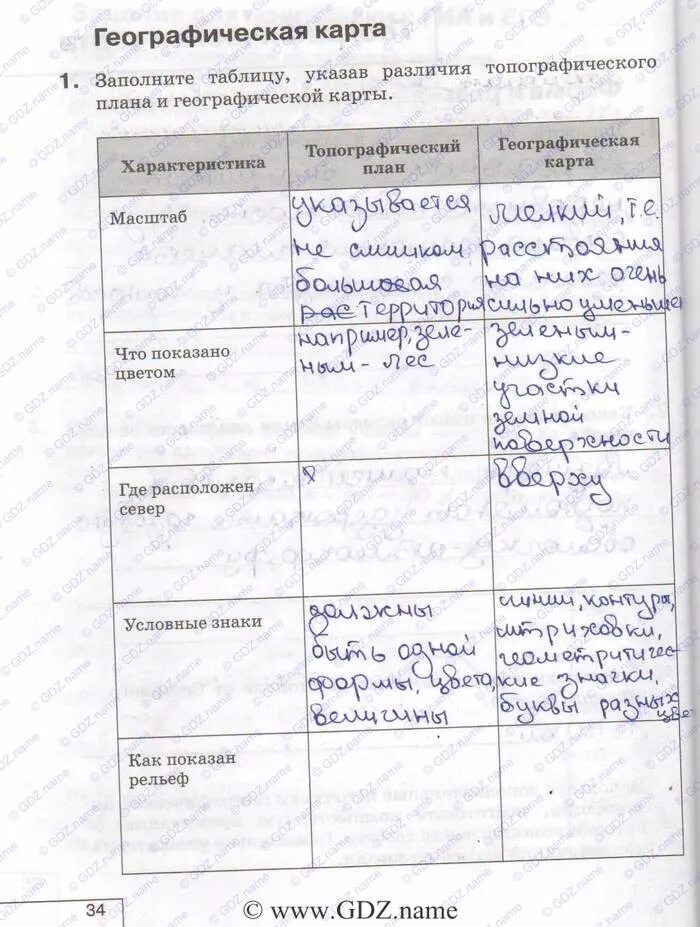 Географическая карта
1. Заполните таблицу, указав различия топографического
плана и географической карты.
Характеристика
Топографический
план
Географическая
карта
Масштаб
указывается
не слишком
большая
территория
мелкий, т.е.
расстояния
на них очень
сильно уменьше
Что показано
цветом
например, зеле-
ным - лес
зеленым-
низкие
участки
земной
поверхности
Где расположен
север
вверху
Условные знаки
должны
быть одной
формы, цвета,
величины
линии, контуры,
штриховки,
геометритичес-
кие значки,
буквы разных
цве
Как показан
рельеф
34
© www.GDZ.name
© GDZ.name